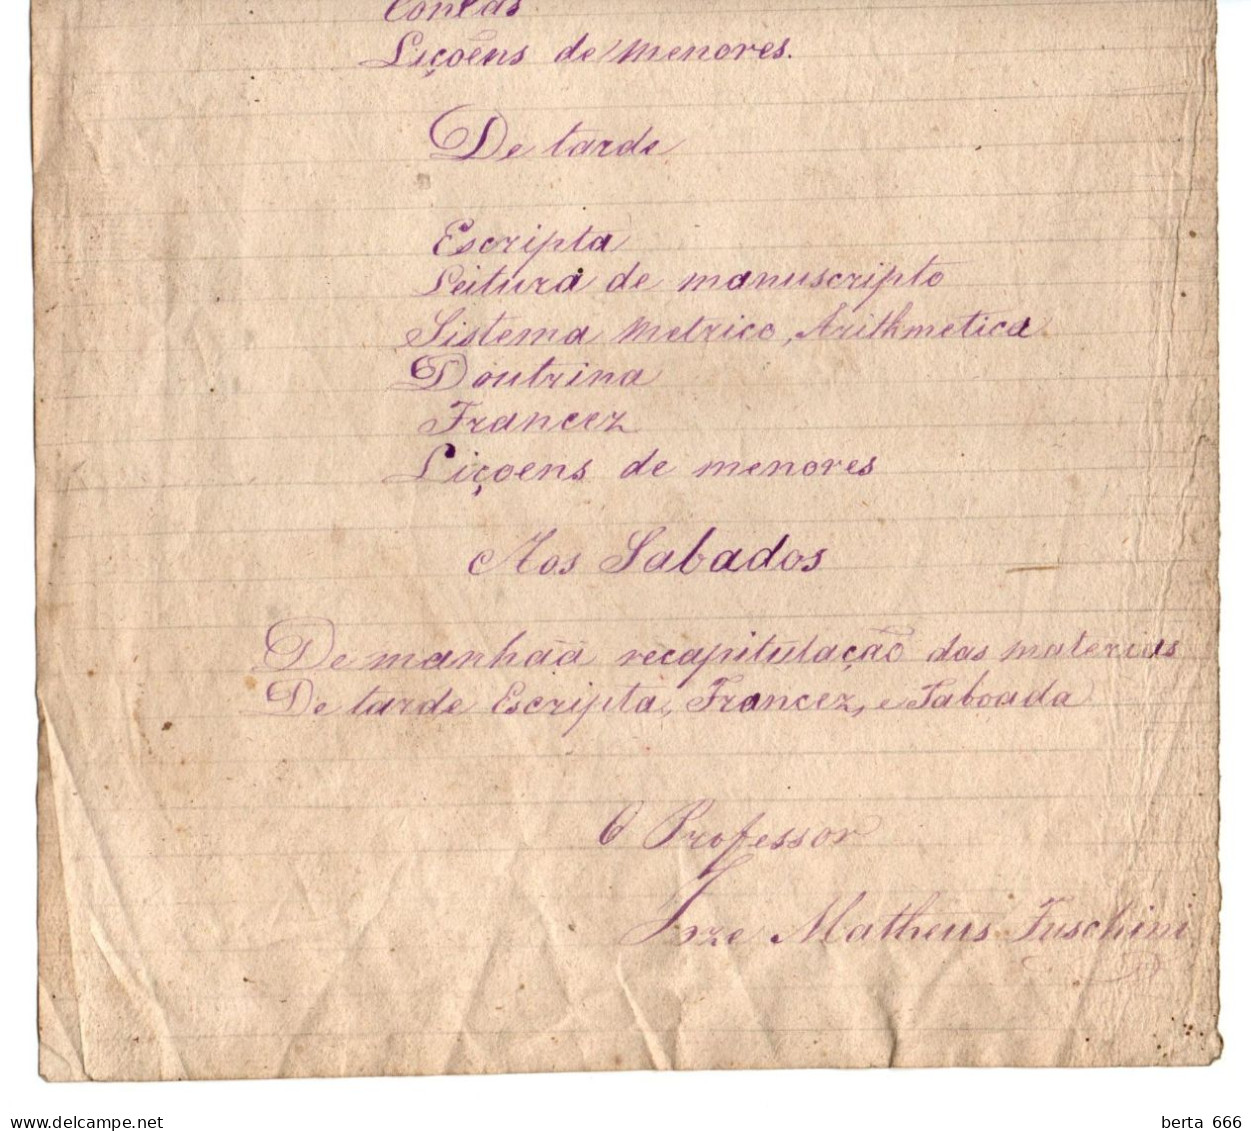 Contas
Liçoens de menores.
De tarde
Escripta
Leitura de manuscripto
Sistema Metrico, Arithmetica
Doutrina
Francez
Liçoens de menores
Aos Sabados
De manhãã recapitulação das materias
De tarde Escripta, Francez, e Taboada
O Professor
Joze Matheus Fuschini
delcampe.net
berta 666